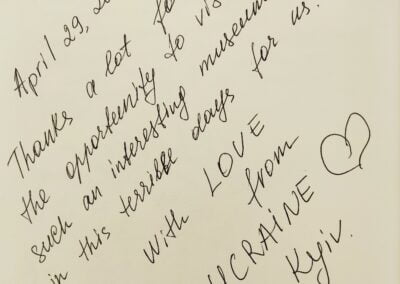 April 29, 20
Thanks a lot fo
the opportunity to vis
such an interesting museum
in this terrible days for us.
With LOVE
from
UCRAINE
Kyiv.